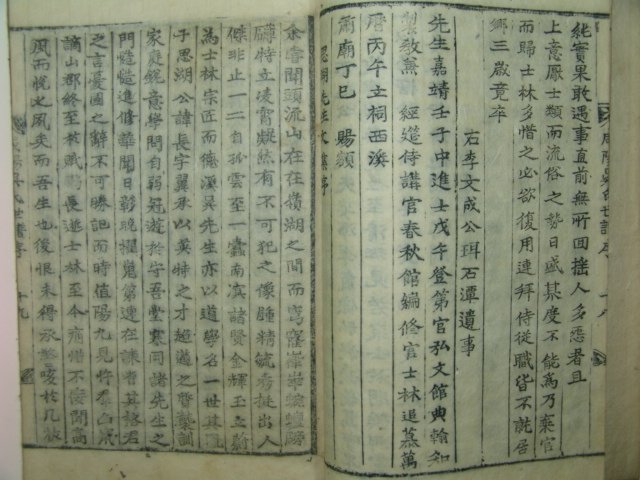 純實果敢遇事直前無所回撓人多惡者且
上意厭士類而流俗之勢日盛某度不能為乃棄官
而歸士林多惜之必欲復用連拜侍從職皆不就居
鄉三歲竟卒
右李文成公珥石潭遺事
先生嘉靖壬子中進士戊午登第官弘文館典翰知
製教兼經筵侍講官春秋館編修官士林追慕萬
曆丙午立祠西溪
爾廟丁巳賜額
思湖先生文集序
余嘗聞頭流山在嶺湖之間而穹窿崒
特立凌霄凝然有不可犯之像鍾精毓秀挺出人
傑非止一二自孤雲至一蠹南溟諸賢金輝玉立
為士林宗匠而德溪吳先生亦以道學名一世其
子思湖公諱長字翼承以英特之才超邁之資襲訓
家庭銳意學問自弱冠遊於守吾堂寒岡諸先生之
門慥慥進修華聞日彰晚擢第遷在諫省其格君
之言憂國之辭不可勝記而時值陽九見忤
謫山郡終至於賦長逝士林至今痛惜不
風而悅之夙矣而吾生也後恨未得承警咳於几
咸陽吳氏世譜序 十九
咸陽吳氏世譜序 十八